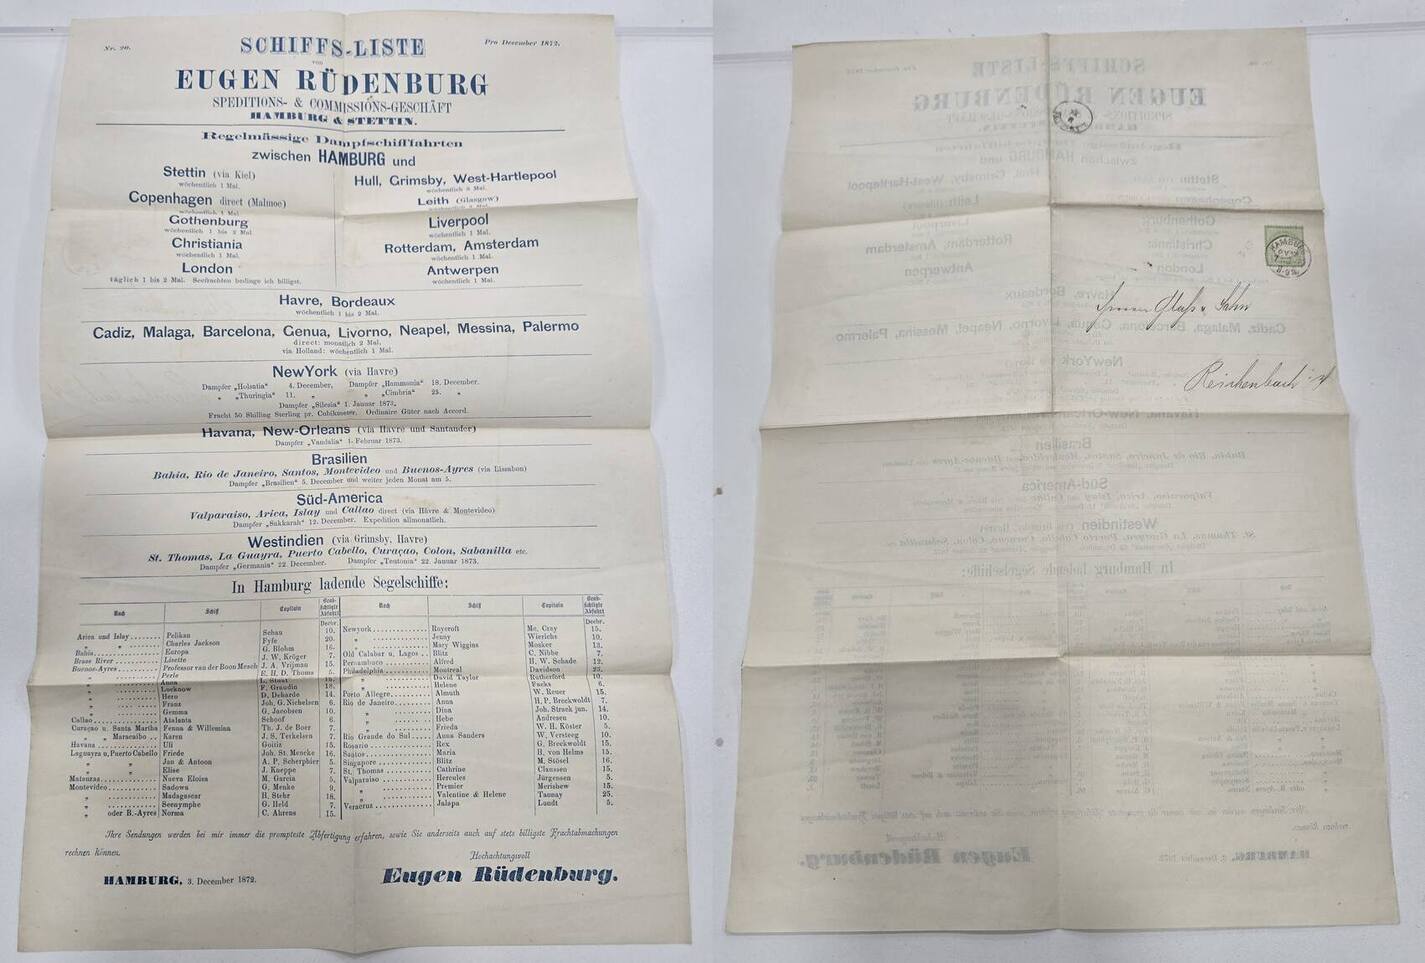 Nr. 20.
Pro December 1872.
SCHIFFS-LISTE
von
EUGEN RÜDENBURG
SPEDITIONS- & COMMISSIONS-GESCHÄFT
HAMBURG & STETTIN.
Regelmässige Dampfschifffahrten
zwischen HAMBURG und
Stettin (via Kiel)
wöchentlich 1 Mal.
Copenhagen direct (Malmoe)
wöchentlich 1 Mal.
Gothenburg
wöchentlich 1 bis 2 Mal.
Christiania
wöchentlich 1 Mal.
London
täglich 1 bis 2 Mal. Seefrachten bedinge ich billigst.
Hull, Grimsby, West-Hartlepool
wöchentlich 3 Mal.
Leith (Glasgow)
wöchentlich 2 Mal.
Liverpool
wöchentlich 1 Mal.
Rotterdam, Amsterdam
wöchentlich 1 Mal.
Antwerpen
wöchentlich 1 Mal.
Havre, Bordeaux
wöchentlich 1 bis 2 Mal.
Cadiz, Malaga, Barcelona, Genua, Livorno, Neapel, Messina, Palermo
direct: monatlich 2 Mal,
via Holland: wöchentlich 1 Mal.
NewYork (via Havre)
Dampfer „Holsatia“ 4. December, Dampfer „Hammonia“ 18. December.
„ „Thuringia“ 11. „ „ „Cimbria“ 25. „
Dampfer „Silesia“ 1. Januar 1873.
Fracht 50 Shilling Sterling pr. Cubikmeter. Ordinaire Güter nach Accord.
Havana, New-Orleans (via Havre und Santander)
Dampfer „Vandalia“ 1. Februar 1873.
Brasilien
Bahia, Rio de Janeiro, Santos, Montevideo und Buenos-Ayres (via Lissabon)
Dampfer „Brasilien“ 5. December und weiter jeden Monat am 5.
Süd-America
Valparaiso, Arica, Islay und Callao direct (via Hâvre & Montevideo)
Dampfer „Sakkarah“ 12. December. Expedition allmonatlich.
Westindien (via Grimsby, Havre)
St. Thomas, La Guayra, Puerto Cabello, Curaçao, Colon, Sabanilla etc.
Dampfer „Germania“ 22. December. Dampfer „Teutonia“ 22. Januar 1873.
In Hamburg ladende Segelschiffe:
Nach Schiff Capitain Beabsichtigte Abfahrt
Decbr.
Arica und Islay Pelikan Schau 10.
„ „ Charles Jackson Fyfe 20.
Bahia Europa G. Blohm 16.
Brass River Lisette J. W. Kröger 7.
Buenos-Ayres Professor van der Boon Mesch J. A. Vrijman 15.
„ Perle E. H. D. Thoms 5.
„ Anna
„ Lucknow F. Graudin 18.
„ Hero D. Deharde 14.
„ Franz Joh. G. Nichelsen 6.
„ Gemma G. Jacobsen 10.
Callao Atalanta Schoof 6.
Curaçao u. Santa Martha Fenna & Willemina Th. J. de Boer 7.
„ „ Maracaibo Karen J. S. Terkelsen 7.
Havana Uli Goitiz 15.
Laguayra u. Puerto Cabello Friede Joh. St. Mencke 16.
„ „ Jan & Antoon A. P. Scherphier 5.
„ „ Elise J. Kaeppe 7.
Matanzas Nueva Eloisa M. Garcia 5.
Montevideo Sadowa G. Menke 9.
„ Madagascar H. Stehr 18.
„ Seenymphe G. Held 7.
„ oder B.-Ayres Norma C. Ahrens 15.
Nach Schiff Capitain Beabsichtigte Abfahrt
Decbr.
Newyork Roycroft Mc. Cray 15.
„ Jenny Wierichs 10.
„ Mary Wiggins Mosker 13.
Old Calabar u. Lagos Blitz C. Nibbe 7.
Pernambuco Alfred H. W. Schade 12.
Philadelphia Montreal Davidson 23.
„ David Taylor Rutherford 10.
„ Helene Fucks 6.
Porto Allegre Almuth W. Reuer 15.
Rio de Janeiro Anna H. P. Breckwoldt 7.
„ Dina Joh. Struck jun. 14.
„ Hebe Andresen 10.
„ Frieda W. H. Köster 5.
Rio Grande do Sul Anna Sanders W. Versteeg 10.
Rosario Rex G. Breckwoldt 15.
Santos Maria H. von Helms 15.
Singapore Blitz M. Stösel 16.
St. Thomas Cathrine Claussen 15.
Valparaiso Hercules Jürgensen 5.
„ Premier Merishew 15.
„ Valentine & Helene Taunay 25.
Veracruz Jalapa Lundt 5.
Ihre Sendungen werden bei mir immer die prompteste Abfertigung erfahren, sowie Sie anderseits auch auf stets billigste Frachtabmachungen
rechnen können.
Hochachtungsvoll
HAMBURG, 3. December 1872.
Eugen Rüdenburg.
HAMBURG
Herren Glass & Sohn
Reichenbach